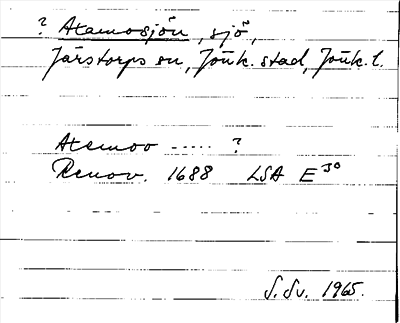 ? Atamosjön, sjö,
Järstorps sn, Jönk. stad, Jönk. l.
Atemoo ..... ?
Renov. 1688 LSA E 30
S. Sv. 1965.